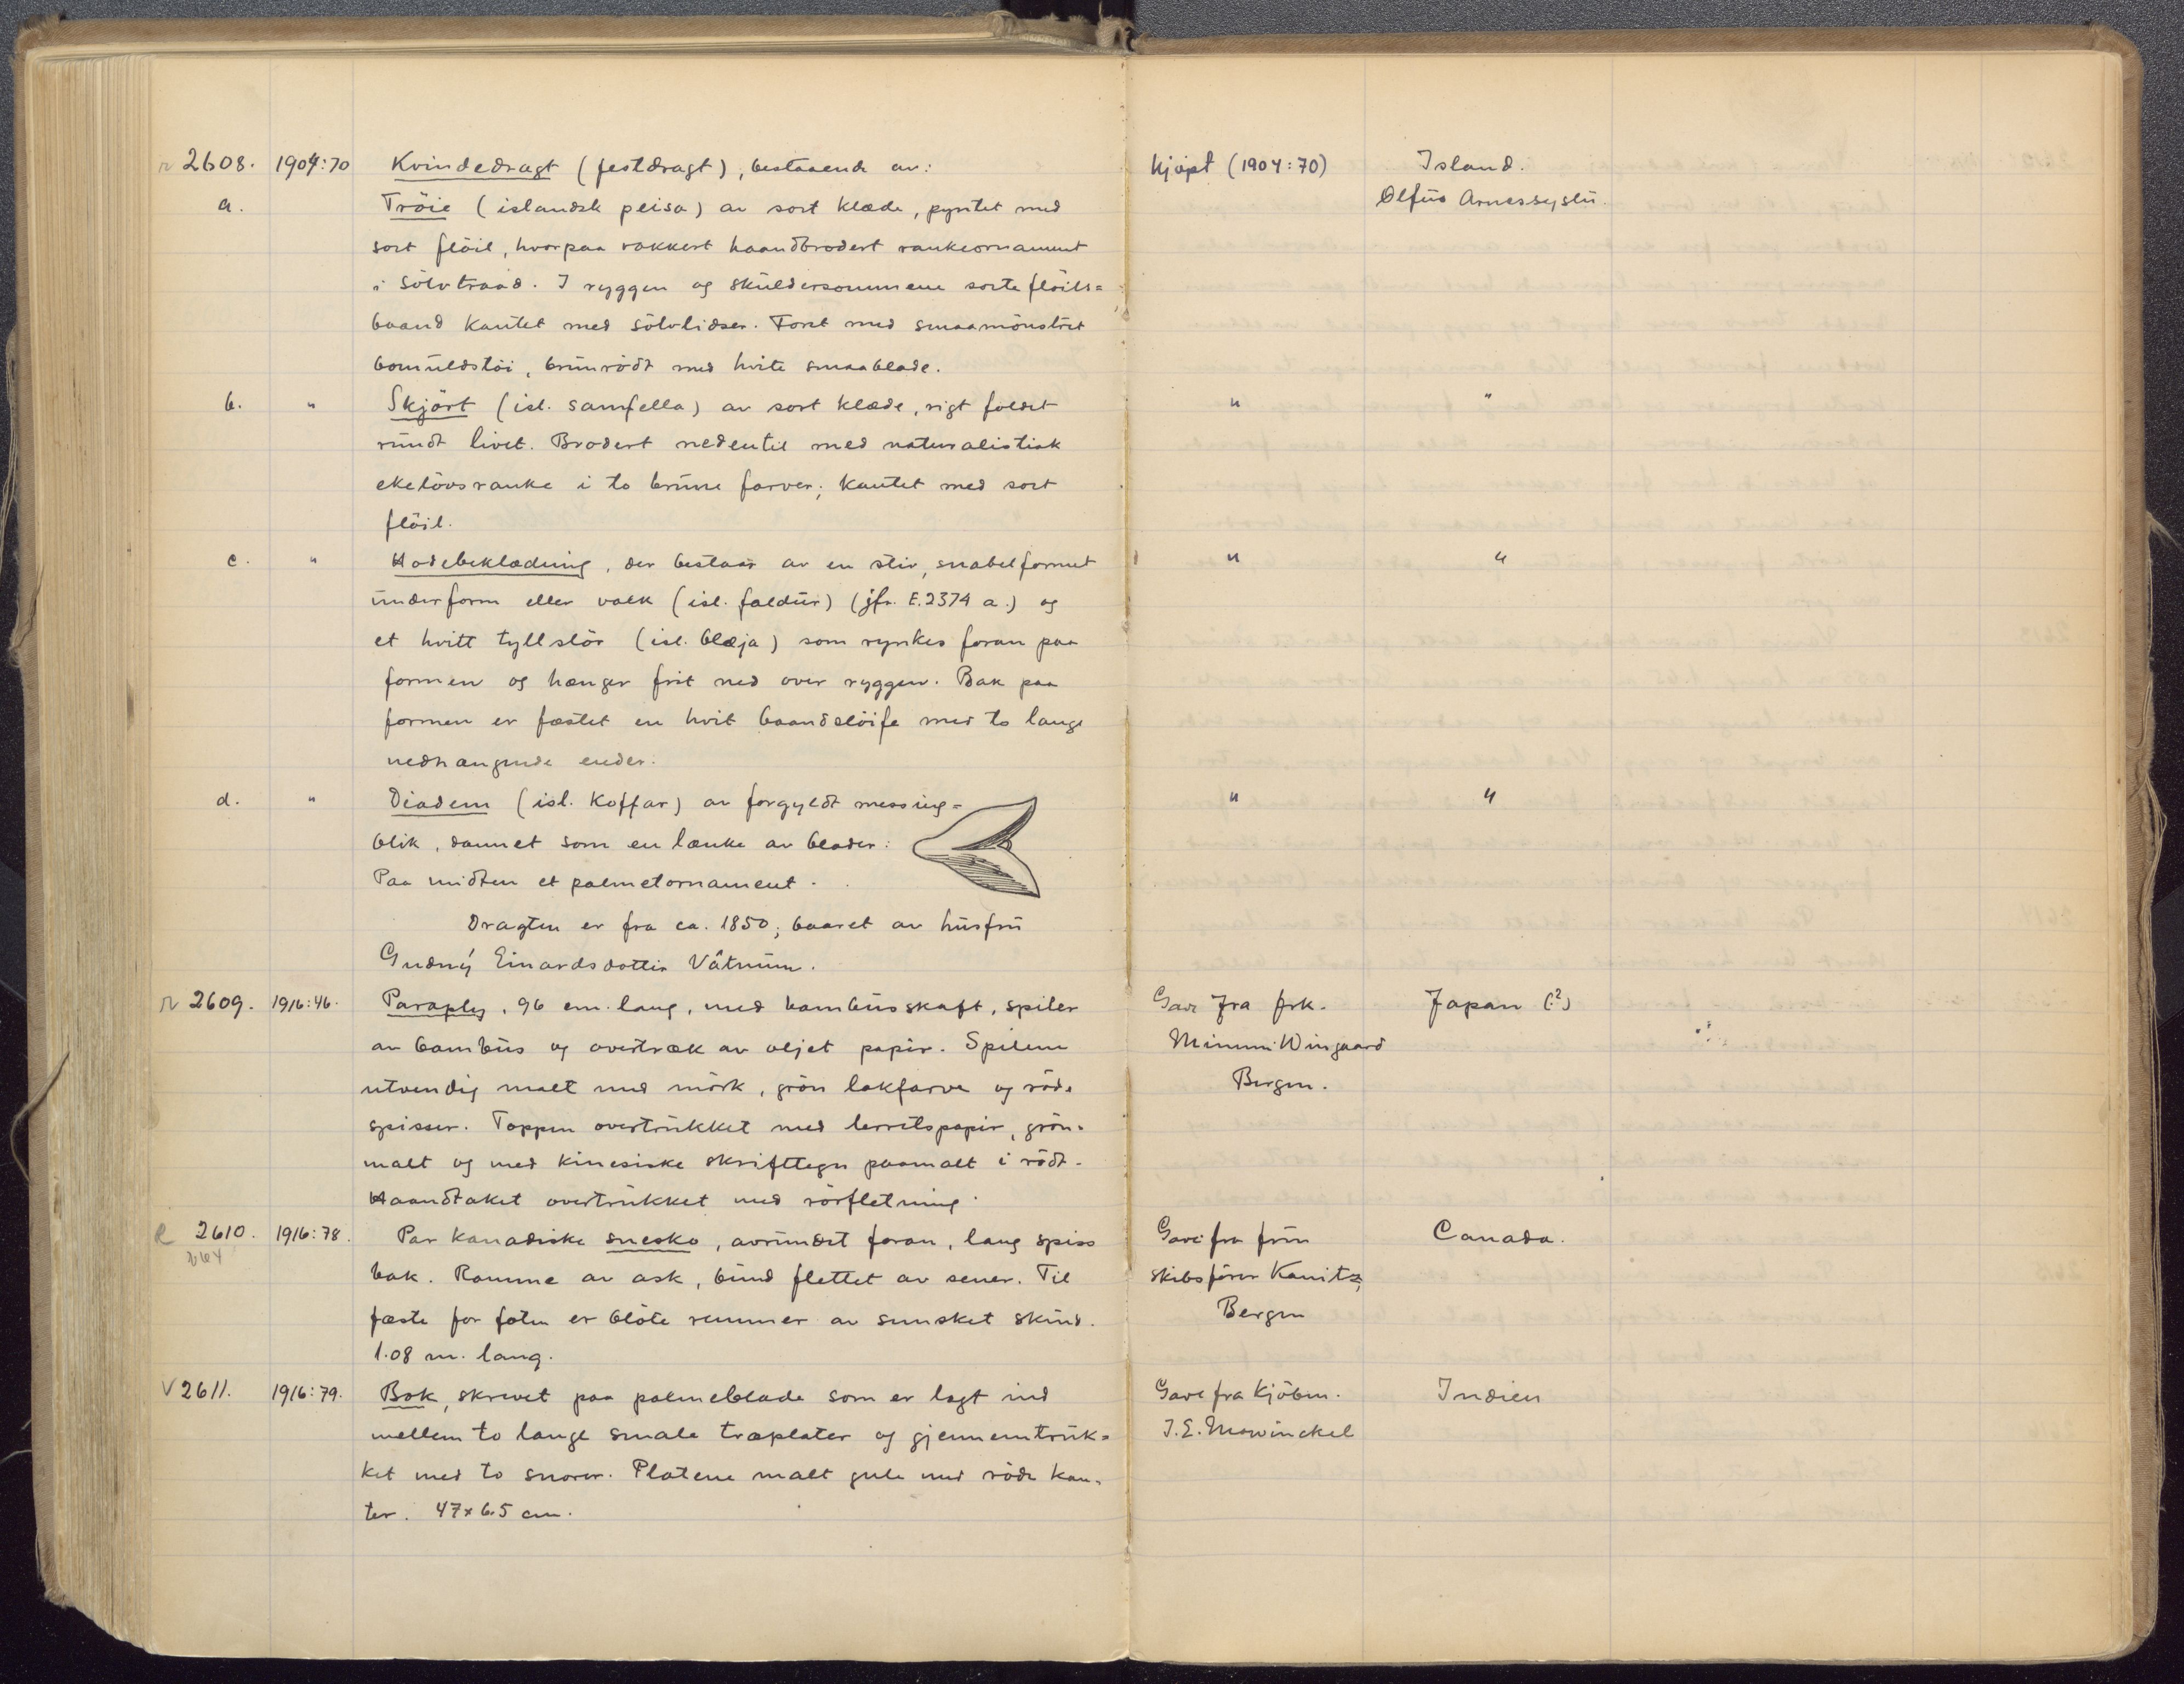 n 2608. 1904:70 Kvindedragt (festdragt), bestaaende av: Kjöpt (1904:70) Island.
a. Tröie (islandsk peisa) av sort klæde, pyntet med Olfus Arnessyslu.
sort flöil, hvorpaa vakkert haandbrodert rankeornament
i sölvtraad. I ryggen og skuldersommene sorte flöils=
baand kantet med sölvlidser. Foret med smaamönstret
bomuldstöi, brunrödt med hvite smaablade.
b. " Skjört (isl. samfella) av sort klæde, rigt foldet " "
rundt livet. Brodert nedentil med naturalistisk
ekelövsranke i to brune farver; kantet med sort
flöil.
c. " Hodebeklædning, der bestaar av en stiv, snabelformet " "
underform eller valk (isl. faldur) (jfr. E.2374 a.) og
et hvitt tyllslör (isl. blæja) som rynkes foran paa
formen og hænger frit ned over ryggen. Bak paa
formen er fæstet en hvit baandslöife med to lange
nedhængende ender.
d. " Diadem (isl. Koffar) av forgyldt messing= " "
blik, dannet som en lænke av blader:
Paa midten et palmetornament.
Dragten er fra ca. 1850; baaret av husfru
Gudný Einardsdottir Vátnum.
n 2609. 1916:46. Paraply, 96 cm. lang, med bambusskaft, spiler Gave fra frk. Japan (?)
av bambus og overtræk av oljet papir. Spilene Mimmi Wingaard
utvendig malt med mörk, grön lakfarve og röde Bergen.
spisser. Toppen overtrukket med lerretspapir, grön=
malt og med kinesiske skrifttegn paamalt i rödt.
Haandtaket overtrukket med rörfletning.
2610. 1916:78. Par kanadiske snesko, avrundet foran, lang spiss Gave fra fru Canada.
bak. Ramme av ask, bund flettet av sener. Til skibsförer Kanitz,
fæste for foten er blöte remmer av semsket skind. Bergen
1.08 m. lang.
V 2611. 1916:79. Bok, skrevet paa palmeblade som er lagt ind Gave fra Kjöbm. Indien
mellem to lange smale træplater og gjennemtruk= J.E. Mowinckel
ket med to snorer. Platene malt gule med röde kan=
ter. 47x6.5 cm.